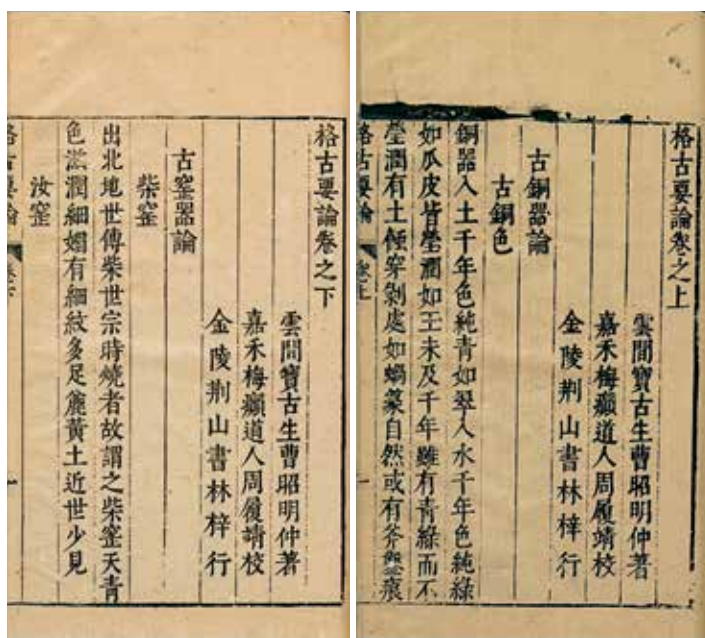 格古要論卷之上
雲間寶古生曹昭明仲著
嘉禾梅癲道人周履靖校
金陵荆山書林梓行
古銅器論
古銅色
銅器入土千年色純青如翠入水千年色純綠
如瓜皮皆瑩潤如玉未及千年雖有青綠而不
瑩潤有土侵穿剝處如蝸篆自然或有斧鑿痕
格古要論 卷上 一
格古要論卷之下
雲間寶古生曹昭明仲著
嘉禾梅癲道人周履靖校
金陵荆山書林梓行
古窰器論
柴窰
出北地世傳柴世宗時燒者故謂之柴窰天青
色滋潤細媚有細紋多足麄黃土近世少見
汝窰
格古要論 卷下 一